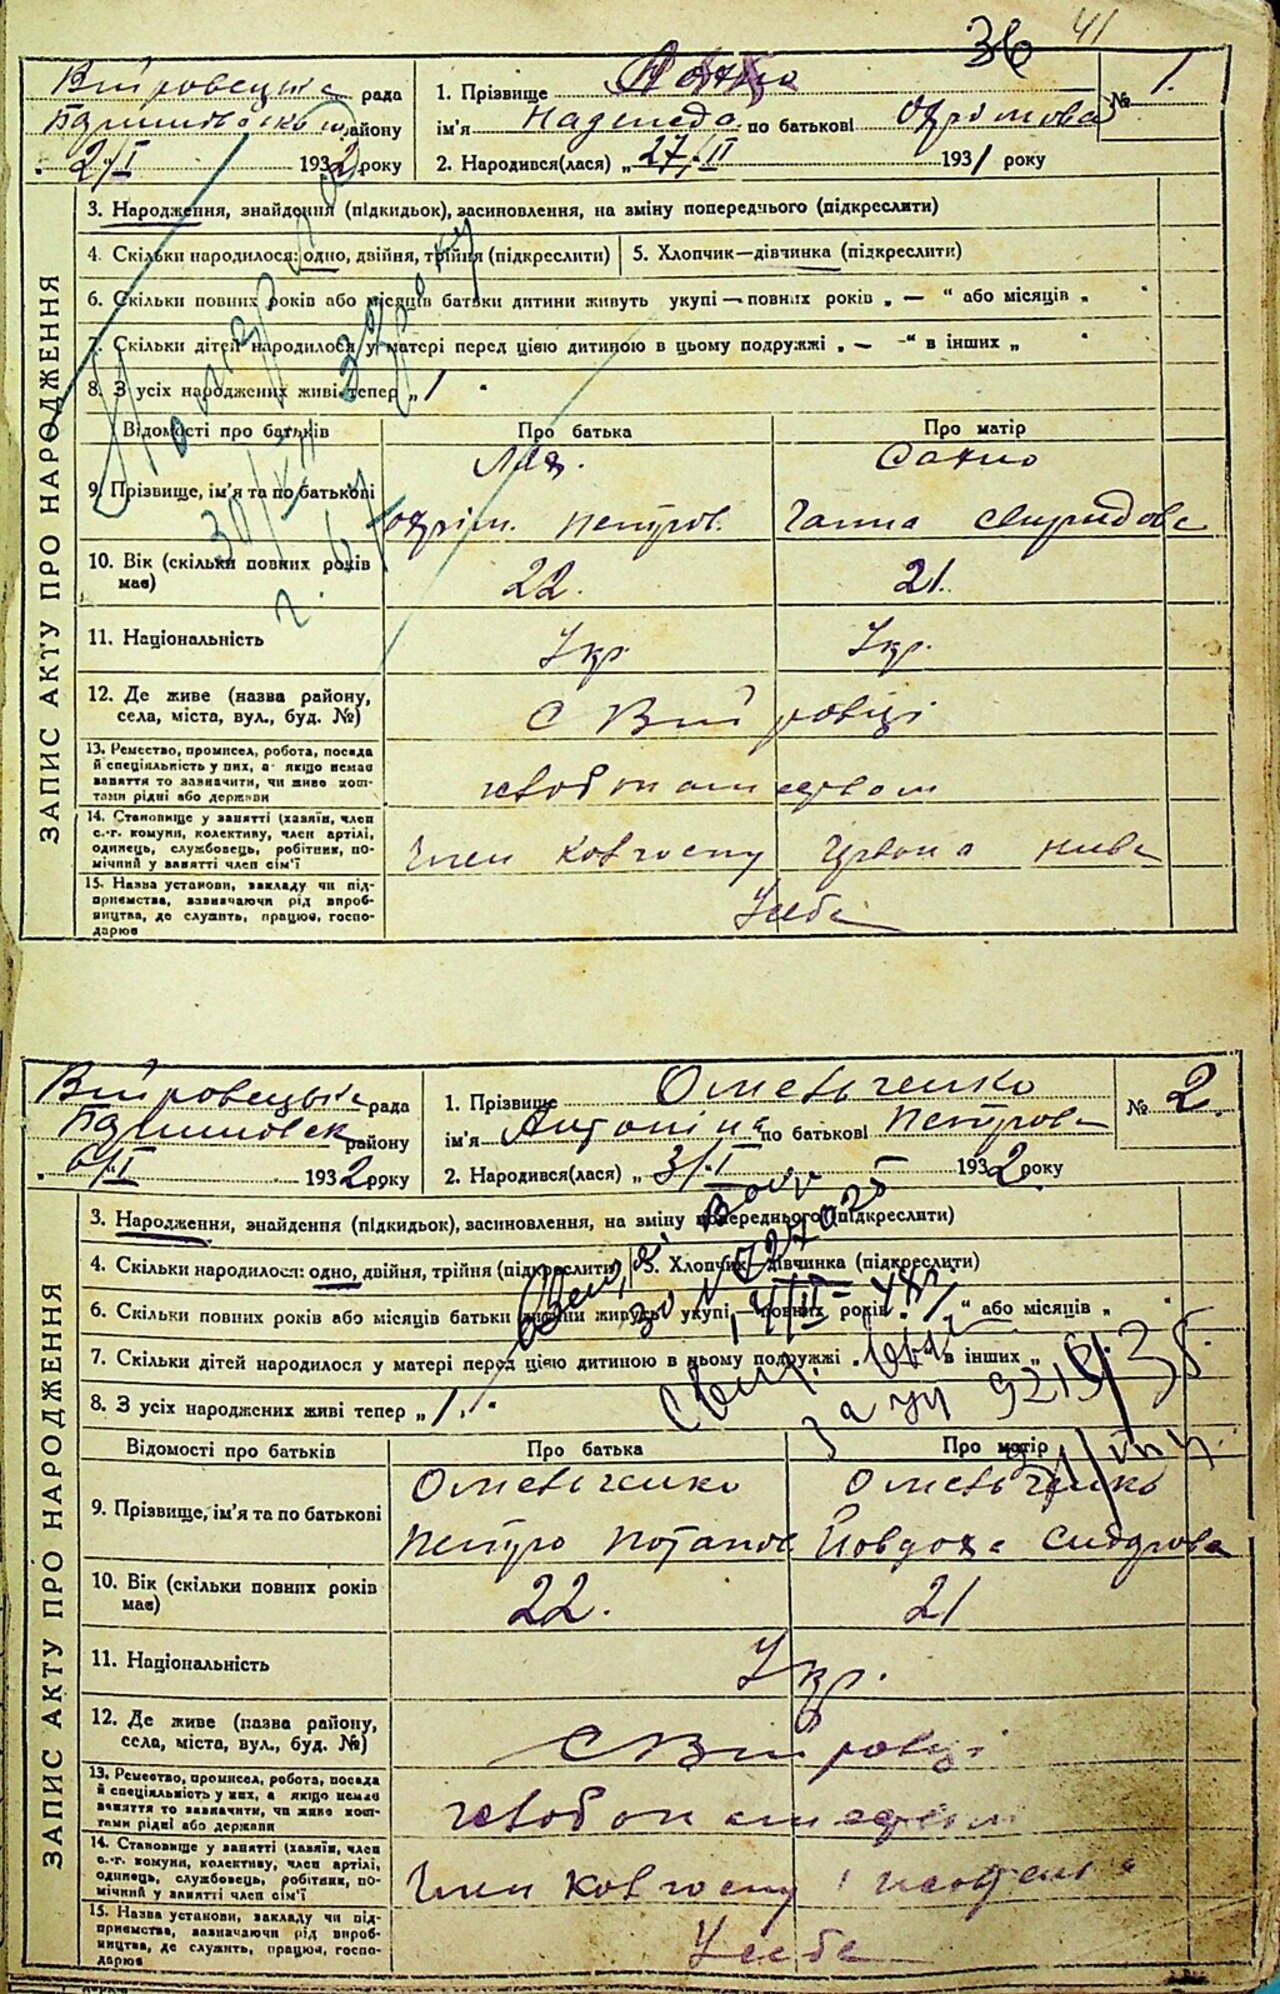 36 41
Вийровецька рада
району
2/I 1932 року
1. Прізвище
№ 1.
ім'я Надежда по батькові
2. Народився(лася) „ 27/II 1931 року
ЗАПИС АКТУ ПРО НАРОДЖЕННЯ
3. Народження, знайдення (підкидьок), засиновлення, на зміну попереднього (підкреслити)
4. Скільки народилося: одно, двійня, трійня (підкреслити) 5. Хлопчик—дівчинка (підкреслити)
6. Скільки повних років або місяців батьки дитини живуть укупі — повних років „ — “ або місяців „ “
7. Скільки дітей народилося у матері перед цією дитиною в цьому подружжі „ — “ в інших „ “
8. З усіх народжених живі тепер „ 1 “
Відомості про батьків Про батька Про матір
Сахно
9. Прізвище, ім'я та по батькові
Петров. Ганна Свиридова
10. Вік (скільки повних років має) 22. 21.
11. Національність Укр. Укр.
12. Де живе (назва району, села, міста, вул., буд. №) С Вийровці
13. Ремество, промисел, робота, посада й спеціяльність у них, а якщо немає заняття то зазначити, чи живе коштами рідні або держави
хлібопашеством
14. Становище у занятті (хазяїн, член с.-г. комуни, колективу, член артілі, одинець, службовець, робітник, помічний у занятті член сім'ї
Член колгоспу Червона нива
15. Назва установи, закладу чи підприємства, зазначаючи рід виробництва, де служить, працює, господарює
У себе
Вийровецька рада
району
6/I 1932 року
1. Прізвище Омельченко
№ 2.
ім'я Антоніна по батькові Петрова
2. Народився(лася) „ 3/I 1932 року
ЗАПИС АКТУ ПРО НАРОДЖЕННЯ
3. Народження, знайдення (підкидьок), засиновлення, на зміну попереднього (підкреслити)
4. Скільки народилося: одно, двійня, трійня (підкреслити) 5. Хлопчик—дівчинка (підкреслити)
6. Скільки повних років або місяців батьки дитини живуть укупі — повних років „ “ або місяців „ “
7. Скільки дітей народилося у матері перед цією дитиною в цьому подружжі „ “ в інших „ “
8. З усіх народжених живі тепер „ 1 “
Відомості про батьків Про батька Про матір
Омельченко Омельченко
9. Прізвище, ім'я та по батькові
Петро Потапов Йовдоха Сидорова
10. Вік (скільки повних років має) 22. 21
11. Національність Укр.
12. Де живе (назва району, села, міста, вул., буд. №) С Вийровці
13. Ремество, промисел, робота, посада й спеціяльність у них, а якщо немає заняття то зазначити, чи живе коштами рідні або держави
хлібопашеством
14. Становище у занятті (хазяїн, член с.-г. комуни, колективу, член артілі, одинець, службовець, робітник, помічний у занятті член сім'ї
Член колгоспу
15. Назва установи, закладу чи підприємства, зазначаючи рід виробництва, де служить, працює, господарює
У себе